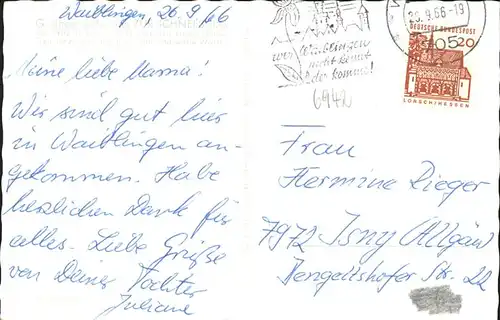 Waiblingen, 26.9/66
Meine liebe Mama!
Wir sind gut hier
in Waiblingen an-
gekommen. Habe
herzlichen Dank für
alles. Liebe Grüße
von Deiner Tochter
Juliane
wer Waiblingen
nicht kennt
der komm!
6942
26.9.66-19
DEUTSCHE BUNDESPOST
520
LORSCH/HESSEN
Frau
Hermine Rieger
7972 Isny (Allgäu)
Dengeltshofer Str. 22